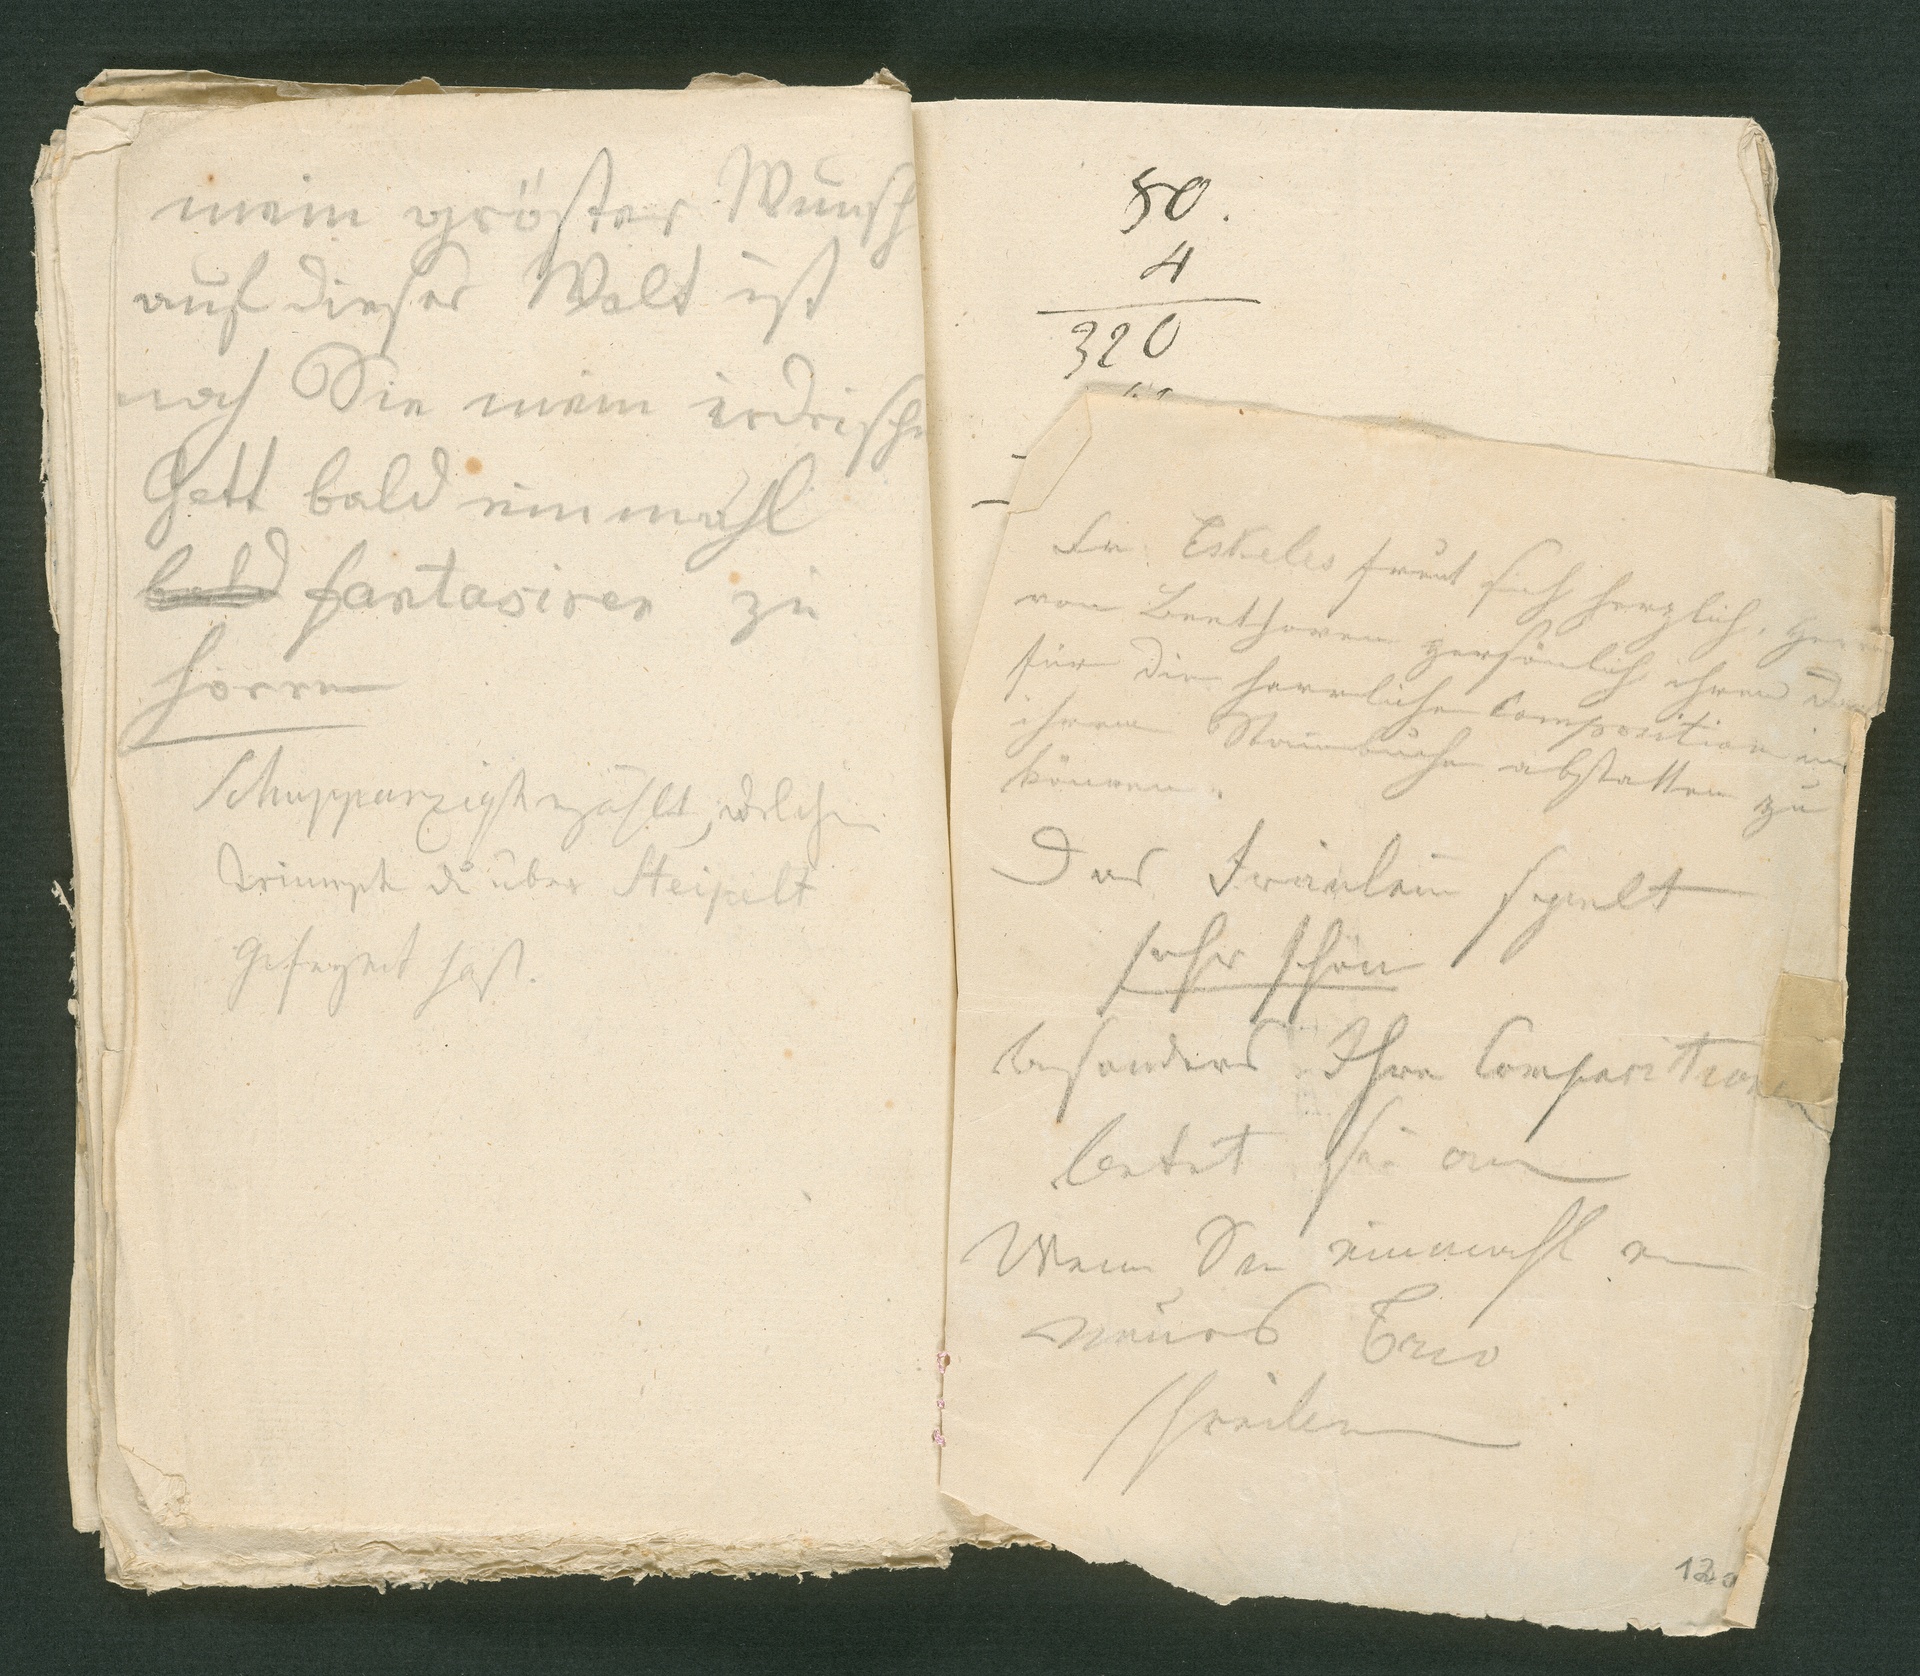 mein gröster Wunsch
auf dieser Welt ist
noch Sie mein irdischer
Gott bald einmahl
bald fantasiren zu
hören
Schuppanzigh erzählt, welchen
Triumph du über Steipelt
gefeyert hast.
80.
4
320
Fr. Eskeles freut sich herzlich, Herrn
von Beethoven persönlich ihren Dank
für die herrliche Composition in
ihrem Stammbuche abstatten zu
können.
Das Fräulein spielt
sehr schön
besonders Ihre Compositionen
betet sie an
Wenn Sie einmahl ein
neues Trio
schreiben
12